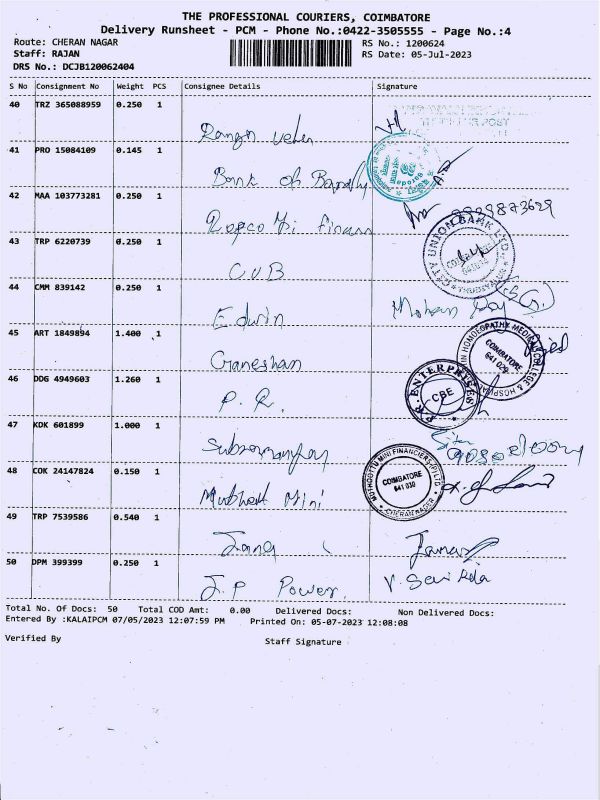 THE PROFESSIONAL COURIERS, COIMBATORE
Delivery Runsheet - PCM - Phone No.:0422-3505555 - Page No.:4
Route: CHERAN NAGAR RS No.: 1200624
Staff: RAJAN RS Date: 05-Jul-2023
DRS No.: DCJB120062404
S No Consignment No Weight PCS Consignee Details Signature
40 TRZ 365088959 0.250 1
41 PRO 15084109 0.145 1
Bank of
42 MAA 103773281 0.250 1
Repco
43 TRP 6220739 0.250 1
CITY UNION BANK LTD.
CUB
44 CMM 839142 0.250 1
Mohan
Edwin
45 ART 1849894 1.400 1
HOMOEOPATHY MEDICAL COLLEGE & HOSPITAL
COIMBATORE
641 029
Ganeshan
46 DDG 4949603 1.260 1
P.R. ENTERPRISES
CBE
P. R.
47 KDK 601899 1.000 1
48 COK 24147824 0.150 1
MUTHOOTTU MINI FINANCIERS (P) LTD
COIMBATORE
641 030
CHERAN NAGER
Mini
49 TRP 7539586 0.540 1
50 DPM 399399 0.250 1
J.P Power.
Total No. Of Docs: 50 Total COD Amt: 0.00 Delivered Docs: Non Delivered Docs:
Entered By :KALAIPCM 07/05/2023 12:07:59 PM Printed On: 05-07-2023 12:08:08
Verified By Staff Signature